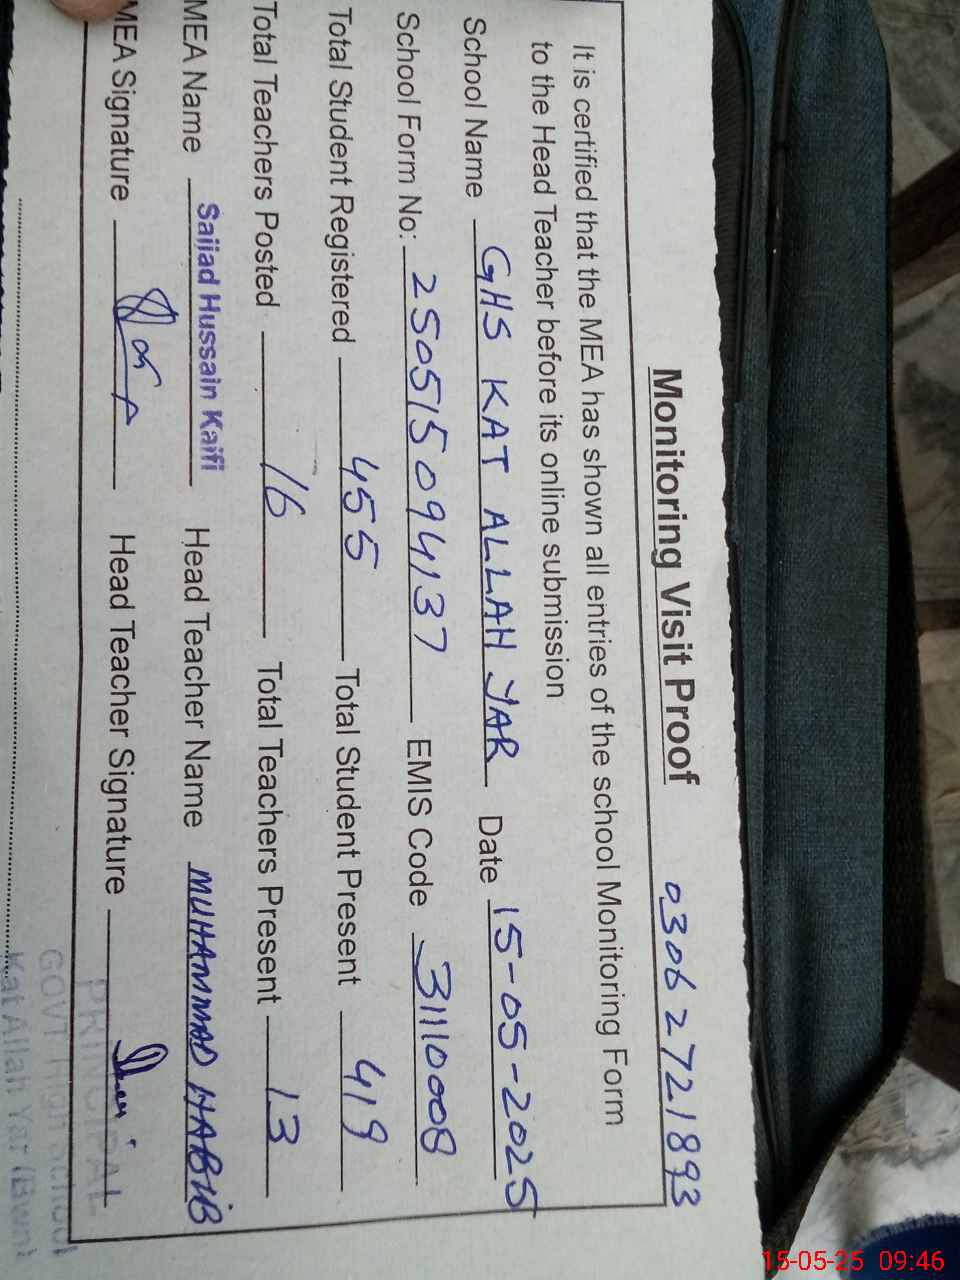 Monitoring Visit Proof 0306 2721893
It is certified that the MEA has shown all entries of the school Monitoring Form
to the Head Teacher before its online submission
School Name GHS KAT ALLAH YAR Date 15-05-2025
School Form No: 250515094137 EMIS Code 31110008
Total Student Registered 455 Total Student Present 419
Total Teachers Posted 16 Total Teachers Present 13
MEA Name Sajjad Hussain Kaifi Head Teacher Name MUHAMMAD HABIB
MEA Signature Head Teacher Signature
PRINCIPAL
GOVT High School
Kat Allah Yar (Bwn)
15-05-25 09:46